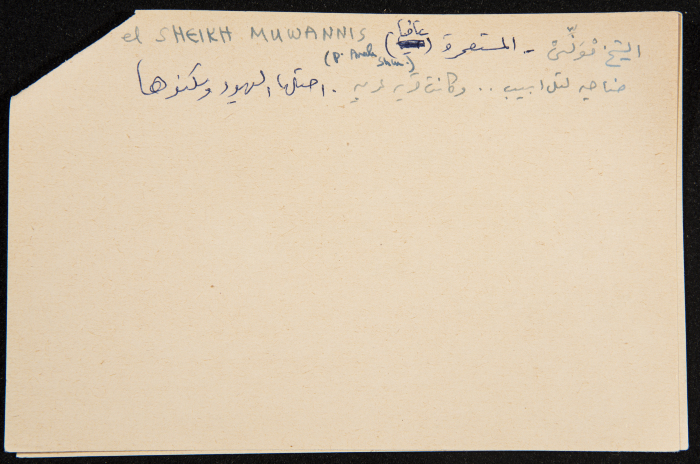 el SHEIKH MUWANNIS
الشيخ مُوَنِّس - المستعمرة
(P. Arab
ضاحيه لتل ابيب .. وكانت قريه عربيه. احتلها اليهود وسكنوها